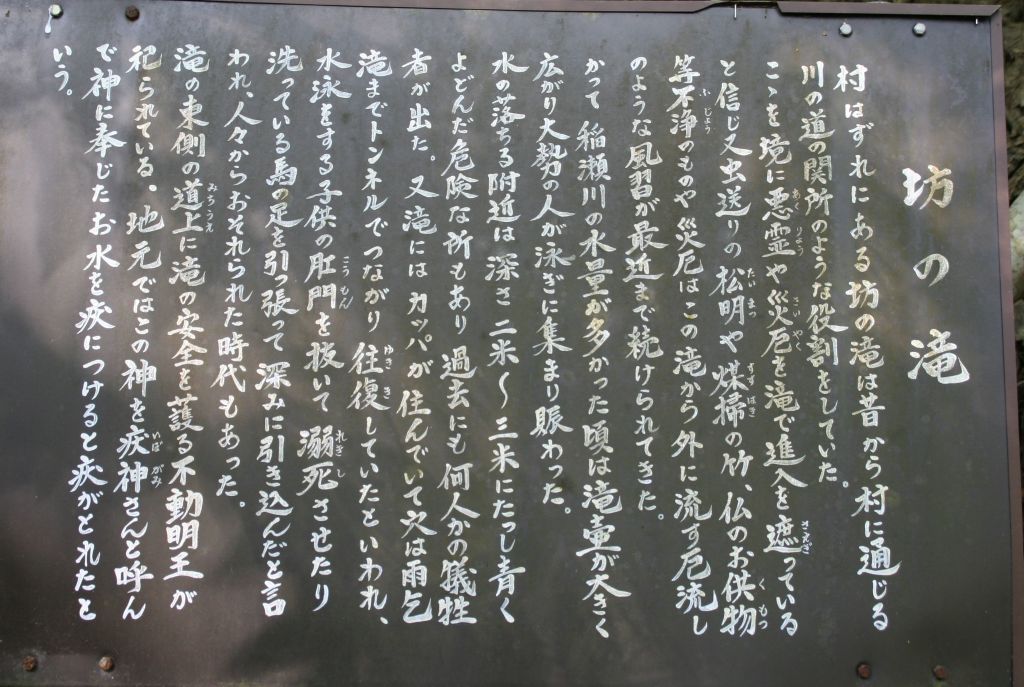 坊の滝
村はずれにある坊の滝は昔から村に通じる
川の道の関所のような役割をしていた。
こゝを境に悪霊や災厄を滝で進入を遮っている
と信じ又虫送りの松明や煤掃の竹、仏のお供物
等不浄のものや災厄はこの滝から外に流す厄流し
のような風習が最近まで続けられてきた。
かって稲瀬川の水量が多かった頃は滝壷が大きく
広がり大勢の人が泳ぎに集まり賑わった。
水の落ちる附近は深さ二米〜三米にたっし青く
よどんだ危険な所もあり過去にも何人かの犠牲
者が出た。又滝にはカッパが住んでいて穴は雨乞
滝までトンネルでつながり往復していたといわれ、
水泳をする子供の肛門を抜いて溺死させたり
洗っている馬の足を引っ張って深みに引き込んだと言
われ、人々からおそれられた時代もあった。
滝の東側の道上に滝の安全を護る不動明王が
祀られている。地元ではこの神を疣神さんと呼ん
で神に奉じたお水を疣につけると疣がとれたと
いう。